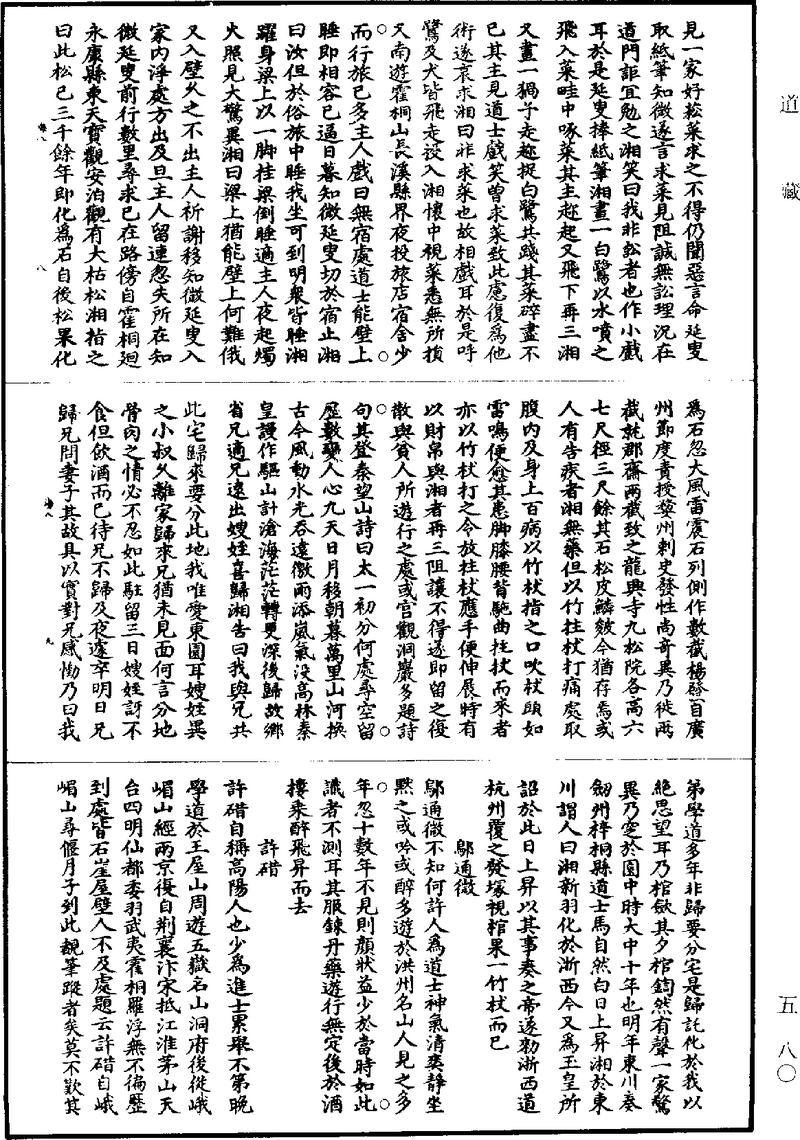 道藏
見一家好菘菜求之不得仍聞惡言命延叟
取紙筆知微遂言求菜見阻誠無訟理況在
道門詎宜勉之湘笑曰我非訟者也作小戲
耳於是延叟捧紙筆湘畫一白鷺以水噴之
飛入菜畦中啄菜其主趂起又飛下再三湘
又畫一猧子走趂捉白鷺共踐其菜碎盡不
已其主見道士戲笑曾求菜致此慮復為他
術遂哀求湘曰非求菜也故相戲耳於是呼
鷺及犬皆飛走投入湘懷中視菜悉無所損
又南遊霍桐山長溪縣界夜投旅店宿舍少
而行旅已多主人戲曰無宿處道士能壁上
睡即相容已逼日暮知微延叟切於宿止湘
曰汝但於俗旅中睡我坐可到明衆皆睡湘
躍身梁上以一脚挂梁倒睡適主人夜起燭
火照見大驚異湘曰梁上猶能壁上何難俄
又入壁久之不出主人祈謝移知微延叟入
家內淨處方出及旦主人留連忽失所在知
微延叟前行數里尋求已在路傍自霍桐迴
永康縣東天寶觀安泊觀有大枯松湘指之
曰此松已三千餘年即化為石自後松果化
為石忽大風雷震石列側作數截楊發自廣
州節度責授婺州刺史發性尚奇異乃徙兩
截就郡齋兩截致之龍興寺九松院各高六
七尺徑三尺餘其石松皮鱗皴今猶存焉或
人有告疾者湘無藥但以竹柱杖打痛處取
腹內及身上百病以竹杖指之口吹杖頭如
雷鳴便愈其患脚膝腰背駝曲拄杖而來者
亦以竹杖打之令放拄杖應手便伸展時有
以財帛與湘者再三阻讓不得遂即留之復
散與貧人所遊行之處或宮觀洞巖多題詩
句其登秦望山詩曰太一初分何處尋空留
歷數變人心九天日月移朝暮萬里山河換
古今風動水光吞遠徼雨添嵐氣沒高林秦
皇謾作驅山計滄海茫茫轉更深後歸故鄉
省兄適兄遠出嫂姪喜歸湘告曰我與兄共
此宅歸來要分此地我唯愛東園耳嫂姪異
之小叔久離家歸來兄猶未見面何言分地
骨肉之情必不忍如此駐留三日嫂姪訝不
食但飲酒而已待兄不歸及夜遽卒明日兄
歸兄問妻子其故具以實對兄感慟乃曰我
弟學道多年非歸要分宅是歸託化於我以
絕思望耳乃棺斂其夕棺鍧然有聲一家驚
異乃窆於園中時大中十年也明年東川奏
劒州梓桐縣道士馬自然白日上昇湘於東
川謂人曰湘新羽化於浙西今又為玉皇所
詔於此日上昇以其事奏之帝遂勑浙西道
杭州覆之發塚視棺果一竹杖而已
鄔通微
鄔通微不知何許人為道士神氣清爽靜坐
默之或吟或醉多遊於洪州名山人見之多
年忽十數年不見則顏狀益少於當時如此
識者不測耳其服鍊丹藥遊行無定後於酒
樓乘醉飛昇而去
許碏
許碏自稱高陽人也少為進士累舉不第晚
學道於王屋山周遊五嶽名山洞府後從峨
嵋山經兩京復自荆襄汴宋抵江淮茅山天
台四明仙都委羽武夷霍桐羅浮無不徧歷
到處皆石崖屋壁人不及處題云許碏自峨
嵋山尋偃月子到此覩筆蹤者矣莫不歎其
五 八〇